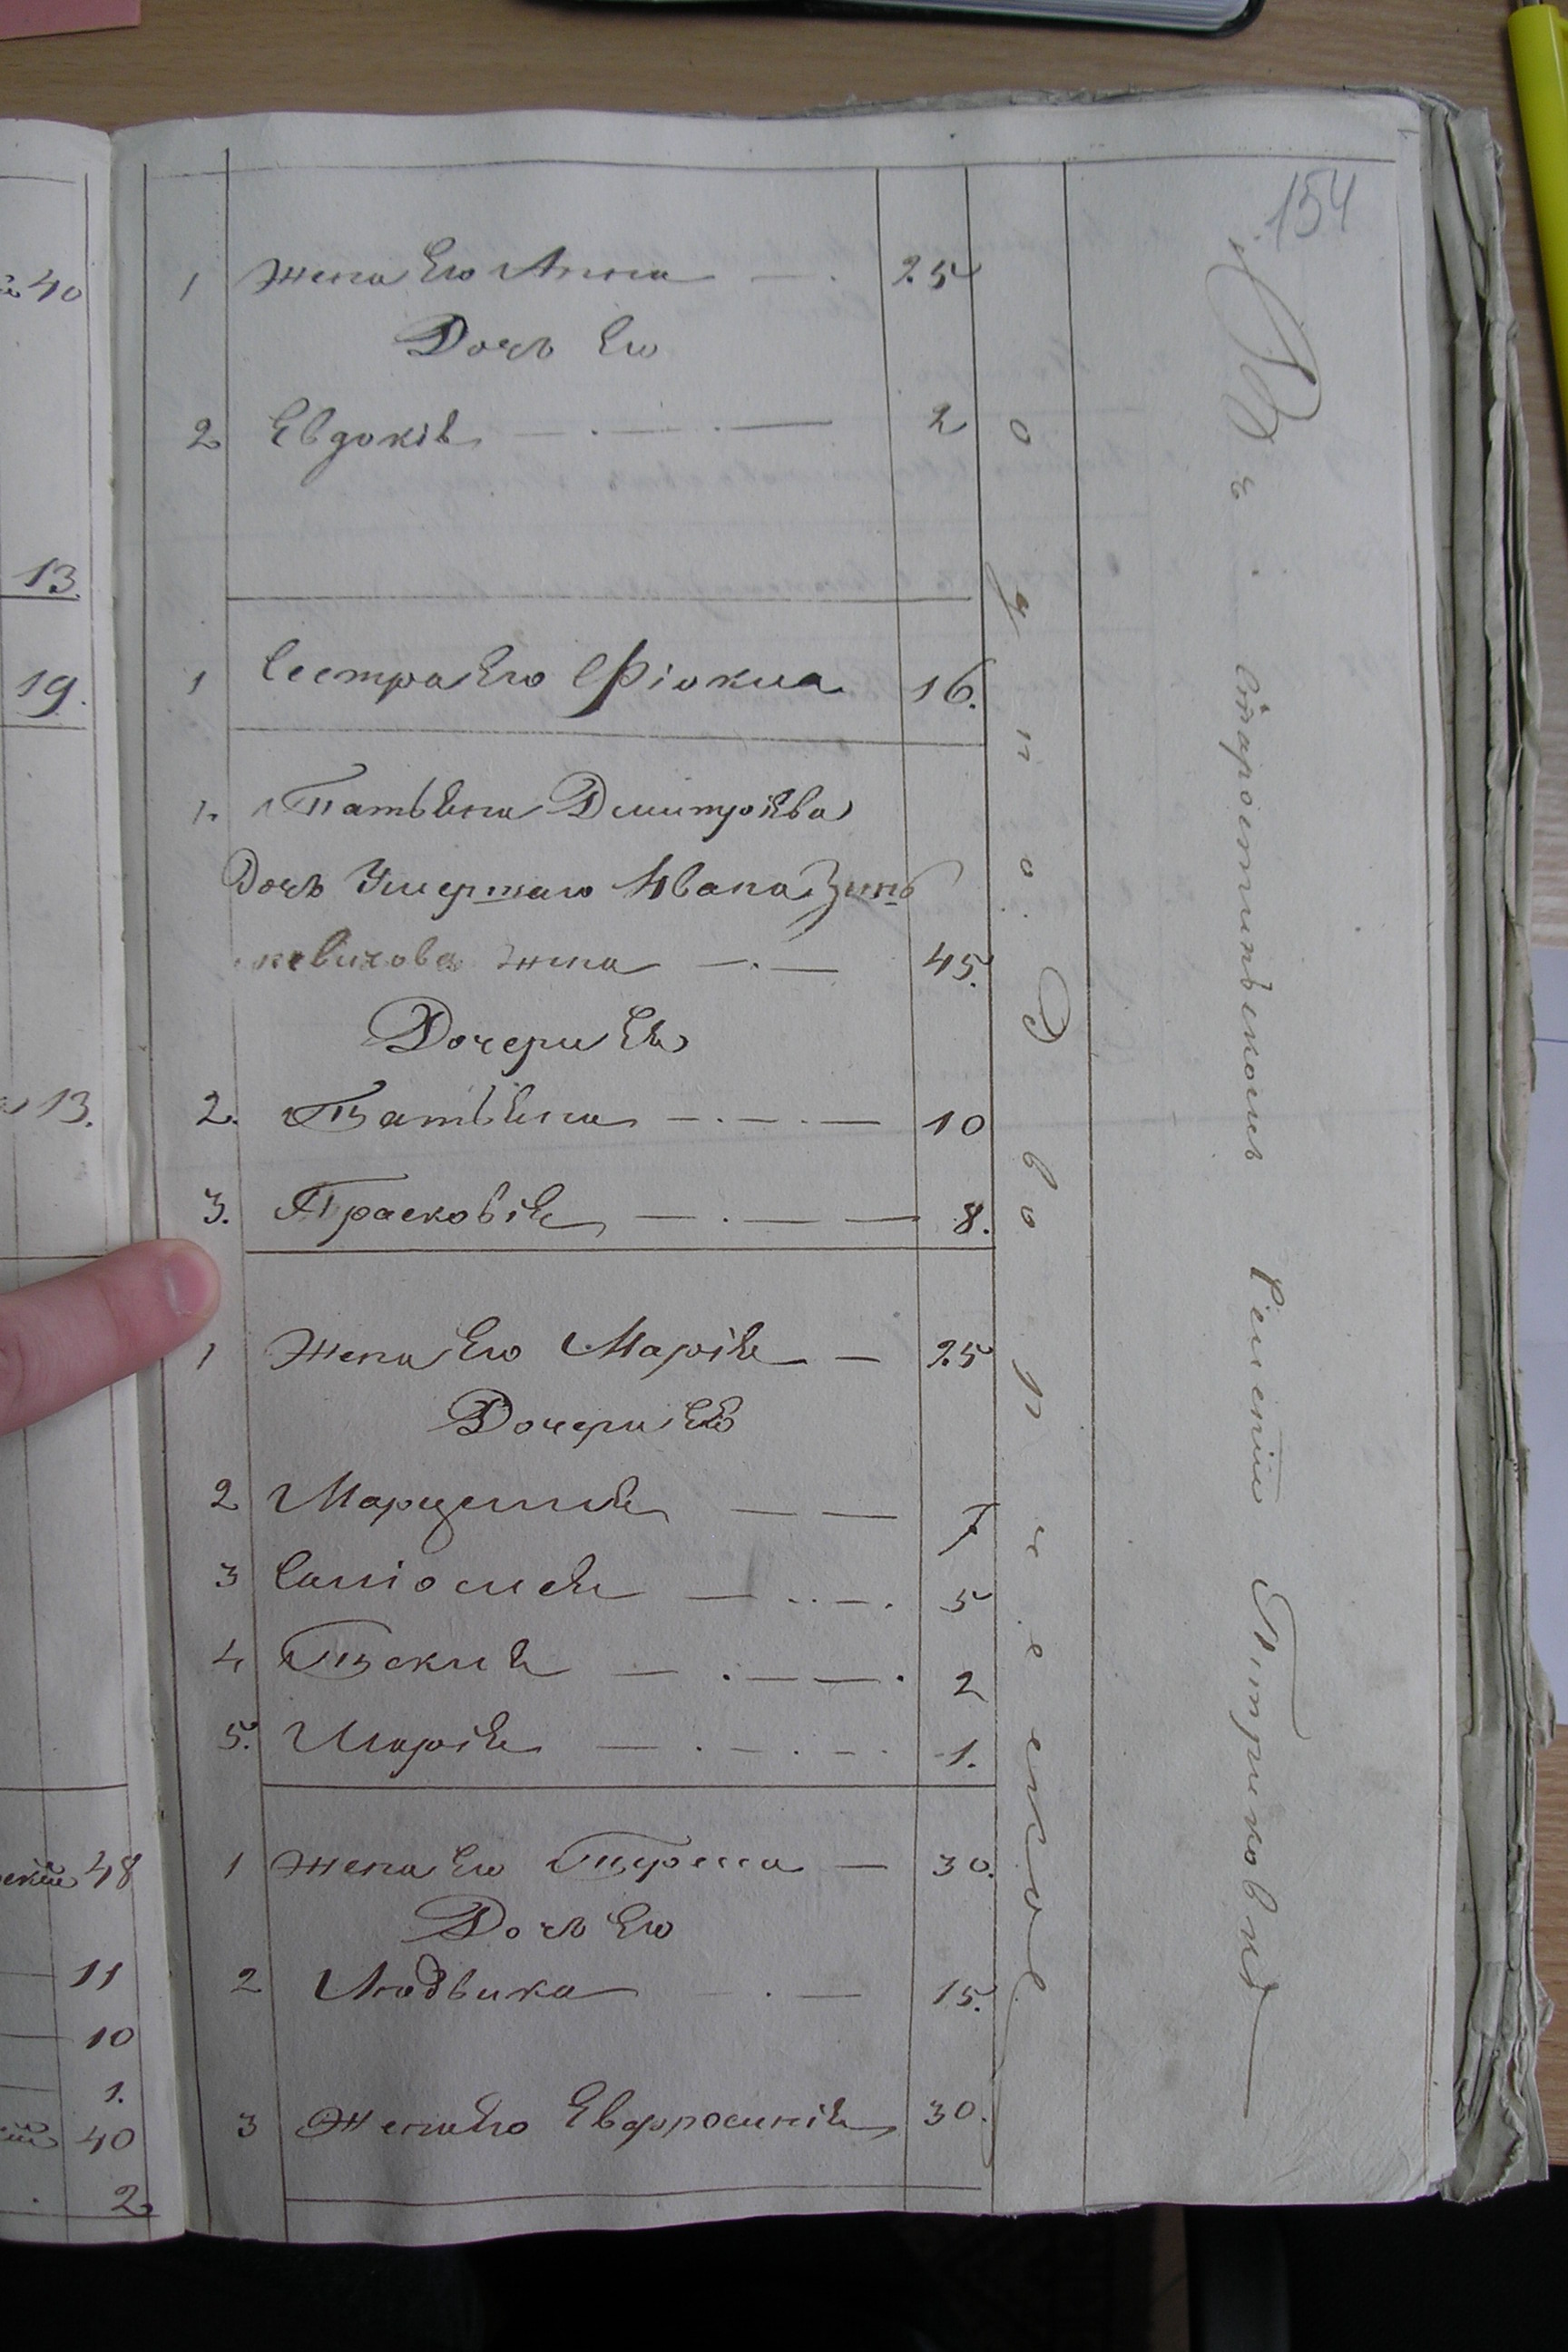 154
1 Жена Его Анна — 25
Дочь Его
2 Евдокія — 2
1 Сестра Его Фіокла 16.
1. Татьяна Дмитріева
Дочь Умершаго Ивана Зинь
кевичова жена — 45.
Дочери Ея
2. Татьяна — 10
3. Прасковія — 8.
1 Жена Его Марія — 25
Дочери Его
2 Марцелля — 7
3 Саліомея — 5
4 Текля — 2
5. Марія — 1.
1 Жена Его Тереса — 30.
Дочь Его
2 Людвика — 15.
3 Жена Его Евфросинія 30.
однодворческой
Въ Старостинскомъ
40
13.
19.
13.
48
11
10
1.
40
2